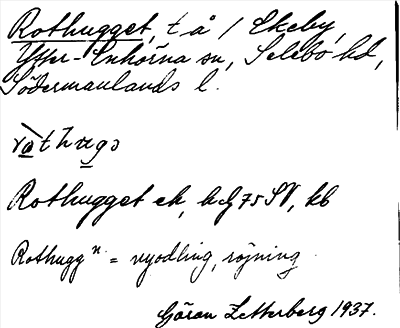 Rothugget, t å / Ekeby,
Ytter-Enhörna sn, Selebo hd,
Södermanlands l.
Rothugget ek, bd 75 SV, kb
Rothugg n. = nyodling, röjning
Göran Zetterberg 1937.